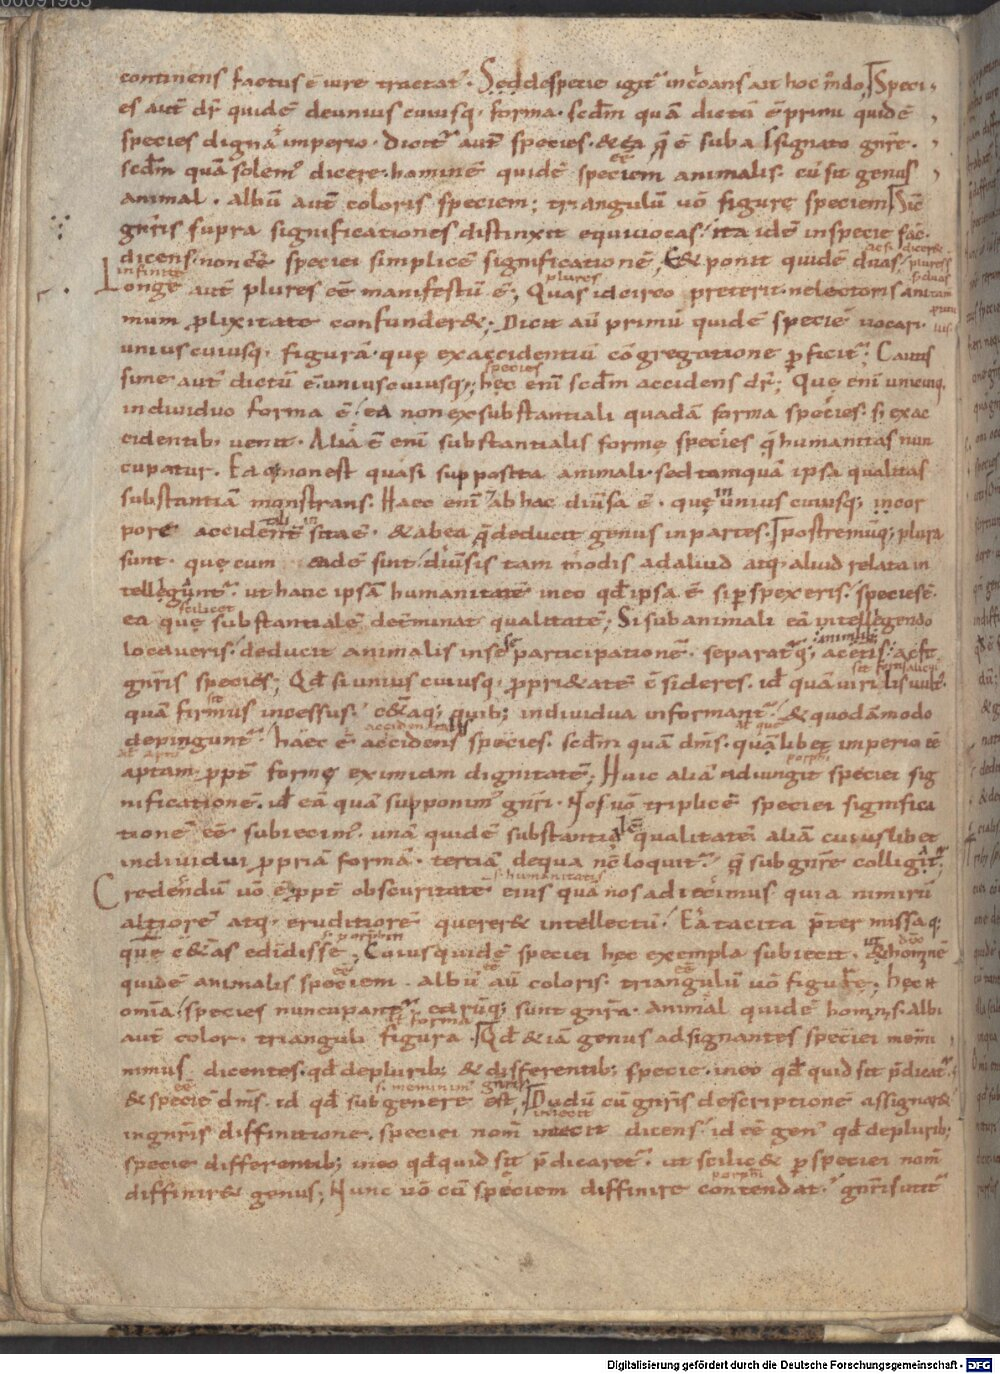 00091983
continens factus ē iure tractat᷑. Sed de specie igit᷑ inchoans ait hoc m̊do. Speci
es aut̄ dr̄ quidē de unius cuiusq; forma. scd̄m quā dictū ē primū quidē
species digna imperio. dicit᷑ aut̄ species. & ea quę ē sub assignato gn̄re.
scd̄m quā solem᷒ dicere. hominē quidē speciem animalis. cū sit genus
animal. albū aut̄ coloris speciem; triangulū uō figurę speciem. Sic̄
gn̄ris supra significationes distinxit equiuocas. ita idē in specie fac̄.
ac si diceret
dicens. non eē̄ speciei simplicē significationē, & ponit quidē duas;
plures
infinite
plures
s. duas
Longe aut̄ plures eē manifestū ē; Quas idcirco preterit. ne lectoris ani
mum plixitate confunder&; Dicit aū primū quidē speciē uocari.
unius cuiusq; figurā. quę ex accidentiū cōgregatione pficit᷑. Cautis
species
sime aut̄ dictū ē. unius cuiusq; hęc enī scd̄m accidens dr̄; Quę enī unicuiq;
indiuiduo forma ē. ea non ex substantiali quadā forma species. s; ex ac
cidentib; uenit. Alia ē enī substantialis formę species quę humanitas nun
cupatur. Ea q; non est quasi supposita animali. sed tamquā ipsa qualitas
substantiā monstrans. Haec enī ab hac diuīsa ē. quę unius cuiusq; in cor
in
pore accidentī sita ē. & ab ea quę deducit genus in partes. Postremūq; plura
sunt. quę cum eadē sint. diuīsis tam modis ad aliud atq; aliud relata in
telleguntur. ut hanc ipsā humanitatē in eo qd̄ ipsa ē si pspexeris. species ē.
scilicet
ea quę substantialē determinat qualitatē; Si sub animali eā intellegendo
animalib;
locaueris. deducit animalis in se participationē. separat᷑q; a cetis. ac fit
gn̄ris species; Qd̄ si unius cuiusq; pprietatē c̄sideres. id̄ quā uirilis uult᷒.
quā firmus incessus. c&aq; quib; indiuidua informant᷑. & quodāmodo
accidentalis
depingunt᷑. haec ē accidens species. scd̄m quā dm̄s. quālibet imperio eē
porphi
aptam. ppt̄ formę eximiam dignitatē; Huic aliā adiungit speciei sig
nificationē. id̄ eā quā supponim᷒ gn̄ri. Nos uō triplicē speciei significa
tionē eē subiecim᷒. unā quidē substantialē qualitatē. aliā cuiuslibet
indiuidui ppriā formā. tertiā de qua nē loquit᷑. quę sub gn̄re colligit᷑.
s. humanitatis
Credendū uō ē ppt̄ obscuritatē eius quā nos adiecimus. quia nimirū
altiorē atq; eruditiorē querer& intellectū. Eā tacita p̄termissaq;
s. porphiri
quę c&as edidisse; Cuius quidē speciei hęc exempla subiecit. ut hominē
quidē animalis speciem. albū aū coloris. triangulū uō figurę; Hęc n̄
omīa species nuncupant᷑. earūq; sunt gn̄ra. animal quidē hominis. albi
forma
aut̄ color. trianguli figura. Qd̄ & iā genus adsignantes speciei memi
nimus. dicentes. qd̄ de plurib; & differentib; specie. in eo qd̄ quid sit p̄dicat᷑.
s. meminim᷒ gn̄ris
& speciē dm̄s. id qd̄ sub genere est. Dudū cū gn̄ris descriptionē assignar&
iniecit
in gn̄ris diffinitione. speciei nom̄ iniecit dicens. id eē gen᷒ qd̄ de plurib;
specie differentib; in eo qd̄ quid sit p̄dicaret᷑. ut scilic& p speciei nom̄
porphi
diffinir& genus; Nunc uō cū speciem diffinire contendat. gn̄ris utit᷑
Digitalisierung gefördert durch die Deutsche Forschungsgemeinschaft - DFG